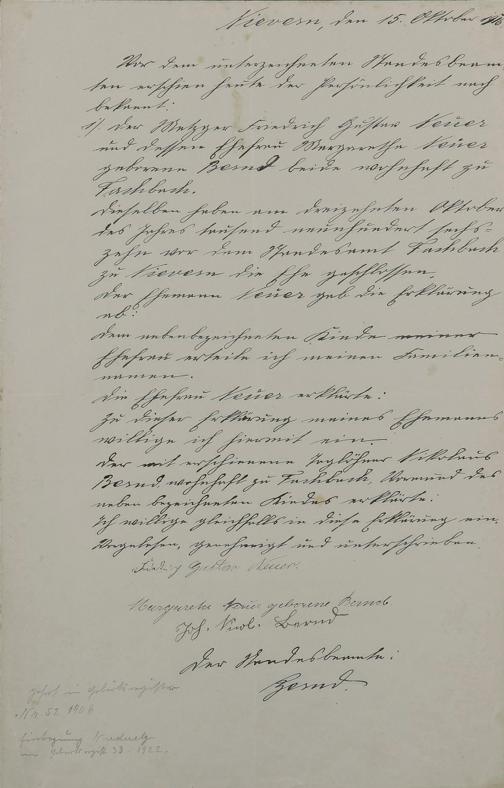 Nievern, den 15. Oktober
Vor dem unterzeichneten Standesbeam-
ten erschien heute der Persönlichkeit nach
bekannt:
1/ der Metzger Friedrich Gustav Neuer
und dessen Ehefrau Margarethe Neuer
geborene Bernd beide wohnhaft zu
Fachbach.
Dieselben haben am dreizehnten Oktober
des Jahres tausend neunhundert sechs-
zehn vor dem Standesamt Fachbach
zu Nievern die Ehe geschlossen.
Der Ehemann Neuer gab die Erklärung
ab:
dem nebenbezeichneten Kinde meiner
Ehefrau erteile ich meinen Familien-
namen.
Die Ehefrau Neuer erklärte:
Zu dieser Erklärung meines Ehemanns
willige ich hiermit ein.
Der mit erschienene Taglöhner Nikolaus
Bernd, wohnhaft zu Fachbach, Vormund des
neben bezeichneten Kindes erklärte:
Ich willige gleichfalls in diese Erklärung ein.
Vorgelesen, genehmigt und unterschrieben.
Friedrich Gustav Neuer.
Margareta Neuer geborene Bernd
Joh. Nikol. Bernd
Der Standesbeamte:
Bernd.
gehört in Geburtsregister
Nr. 52 1906
38 - 1922.